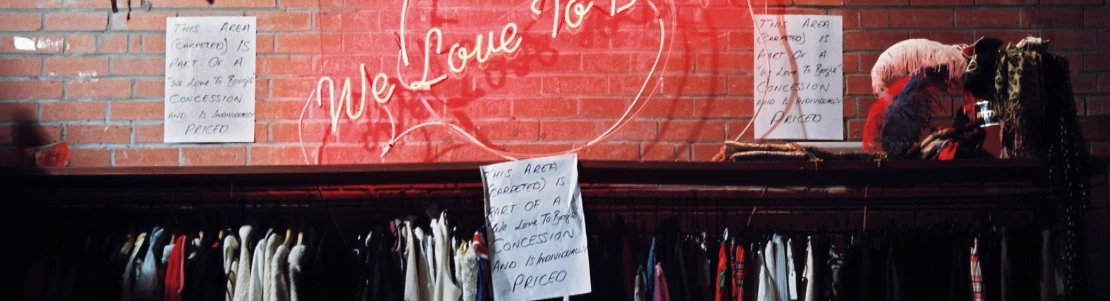 We Love To B
THIS AREA
(CARPETED) IS
PART OF A
"We Love To Boogie"
CONCESSION
AND IS INDIVIDUALLY
PRICED
THIS AREA
(CARPETED) IS
PART OF A
"We Love To Boogie"
CONCESSION
AND IS INDIVIDUALLY
PRICED
THIS AREA
(CARPETED) IS
PART OF A
We Love To Boogie
CONCESSION
AND IS INDIVIDUALLY
PRICED